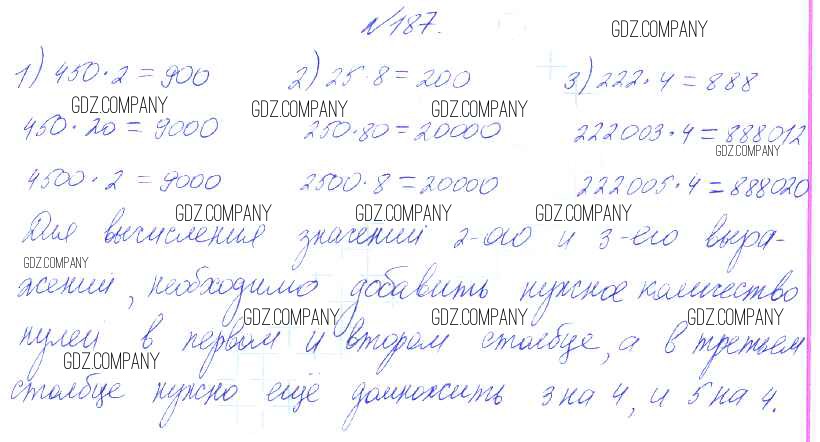 №187. GDZ.COMPANY
1) 450·2=900 2) 25·8=200 3) 222·4=888
GDZ.COMPANY GDZ.COMPANY GDZ.COMPANY
450·20=9000 250·80=20000 222003·4=888012
GDZ.COMPANY
4500·2=9000 2500·8=20000 222005·4=888020
GDZ.COMPANY GDZ.COMPANY GDZ.COMPANY
Для вычисления значений 2-ого и 3-его выра-
GDZ.COMPANY
жений, необходимо добавить нужное количество
GDZ.COMPANY GDZ.COMPANY GDZ.COMPANY GDZ.COMPANY
нулей в первом и втором столбце, а в третьем
GDZ.COMPANY
столбце нужно ещё домножить 3 на 4, и 5 на 4.